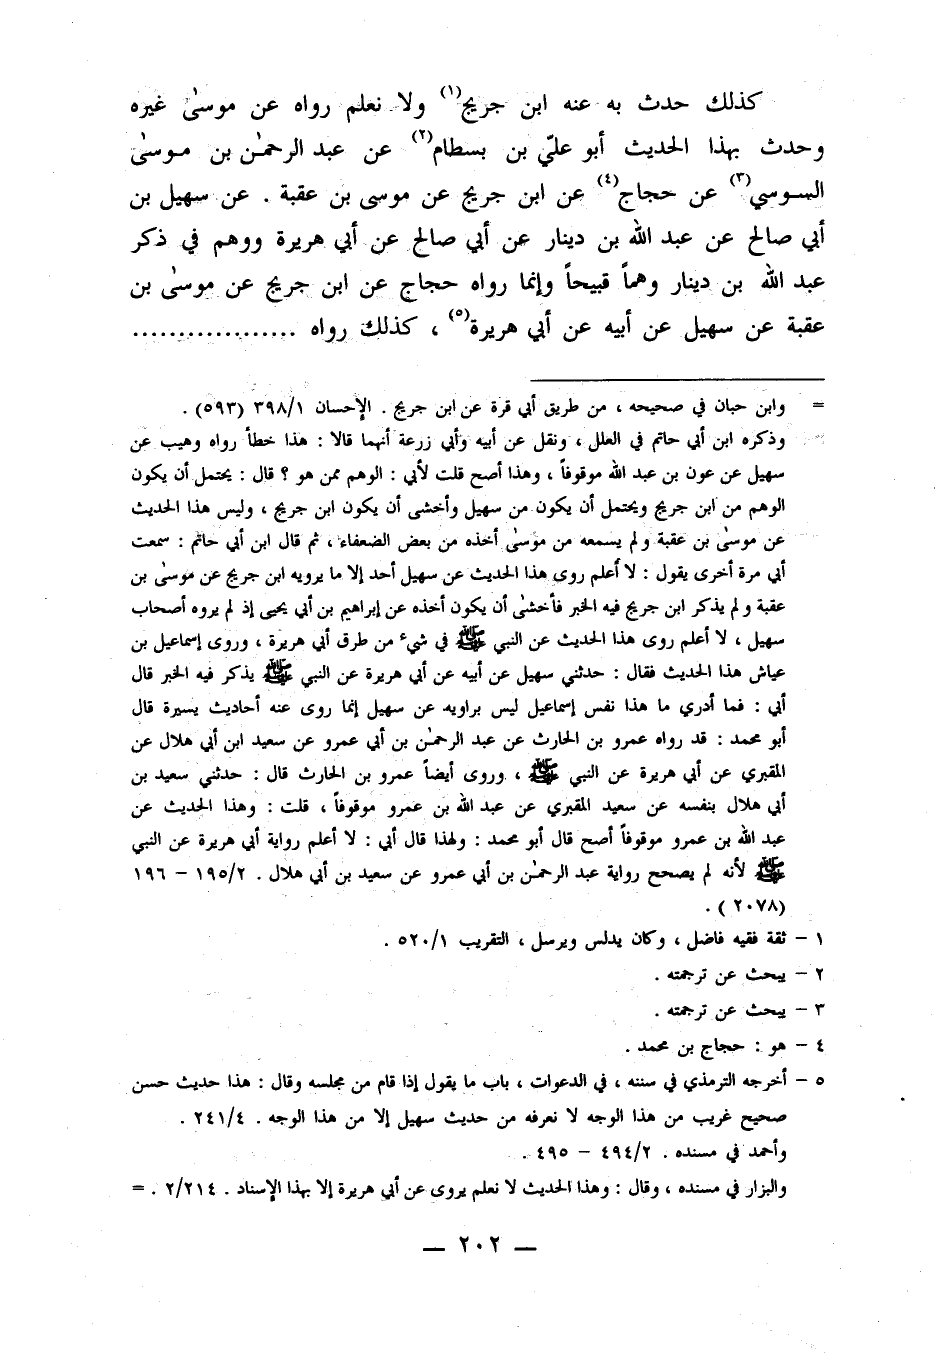 كذلك حدث به عنه ابن جريج(١) ولا نعلم رواه عن موسىٰ غيره
وحدث بهذا الحديث أبو عليّ بن بسطام(٢) عن عبد الرحمٰن بن موسىٰ
السوسي(٣) عن حجاج(٤) عن ابن جريج عن موسى بن عقبة . عن سهيل بن
أبي صالح عن عبد الله بن دينار عن أبي صالح عن أبي هريرة ووهم في ذكر
عبد الله بن دينار وهماً قبيحاً وإنما رواه حجاج عن ابن جريج عن موسىٰ بن
عقبة عن سهيل عن أبيه عن أبي هريرة(٥) ، كذلك رواه ..................
= وابن حبان في صحيحه ، من طريق أبي قرة عن ابن جريج . الإحسان ٣٩٨/١ (٥٩٣) .
وذكره ابن أبي حاتم في العلل ، ونقل عن أبيه وأبي زرعة أنهما قالا : هذا خطأ رواه وهيب عن
سهيل عن عون بن عبد الله موقوفاً ، وهذا أصح قلت لأبي : الوهم ممن هو ؟ قال : يحتمل أن يكون
الوهم من ابن جريج ويحتمل أن يكون من سهيل وأخشى أن يكون ابن جريج ، وليس هذا الحديث
عن موسىٰ بن عقبة ولم يسمعه من موسىٰ أخذه من بعض الضعفاء ، ثم قال ابن أبي حاتم : سمعت
أبي مرة أخرى يقول : لا أعلم روى هذا الحديث عن سهيل أحد إلا ما يرويه ابن جريج عن موسىٰ بن
عقبة ولم يذكر ابن جريج فيه الخبر فأخشىٰ أن يكون أخذه عن إبراهيم بن أبي يحيى إذ لم يروه أصحاب
سهيل ، لا أعلم روى هذا الحديث عن النبي ﷺ في شيء من طرق أبي هريرة ، وروى إسماعيل بن
عياش هذا الحديث فقال : حدثني سهيل عن أبيه عن أبي هريرة عن النبي ﷺ يذكر فيه الخبر قال
أبي : فما أدري ما هذا نفس إسماعيل ليس براويه عن سهيل إنما روى عنه أحاديث يسيرة قال
أبو محمد : قد رواه عمرو بن الحارث عن عبد الرحمٰن بن أبي عمرو عن سعيد ابن أبي هلال عن
المقبري عن أبي هريرة عن النبي ﷺ ، وروى أيضاً عمرو بن الحارث قال : حدثني سعيد بن
أبي هلال بنفسه عن سعيد المقبري عن عبد الله بن عمرو موقوفاً ، قلت : وهذا الحديث عن
عبد الله بن عمرو موقوفاً أصح قال أبو محمد : ولهذا قال أبي : لا أعلم رواية أبي هريرة عن النبي
ﷺ لأنه لم يصحح رواية عبد الرحمٰن بن أبي عمرو عن سعيد بن أبي هلال . ١٩٥/٢ – ١٩٦
(٢٠٧٨) .
١ – ثقة فقيه فاضل ، وكان يدلس ويرسل ، التقريب ٥٢٠/١ .
٢ – يبحث عن ترجمته .
٣ – يبحث عن ترجمته .
٤ – هو : حجاج بن محمد .
٥ – أخرجه الترمذي في سننه ، في الدعوات ، باب ما يقول إذا قام من مجلسه وقال : هذا حديث حسن
صحيح غريب من هذا الوجه لا نعرفه من حديث سهيل إلا من هذا الوجه . ٢٤١/٤ .
وأحمد في مسنده . ٤٩٤/٢ – ٤٩٥ .
والبزار في مسنده ، وقال : وهذا الحديث لا نعلم يروى عن أبي هريرة إلا بهذا الإسناد . ٢/٢١٤ . =
— ٢٠٢ —